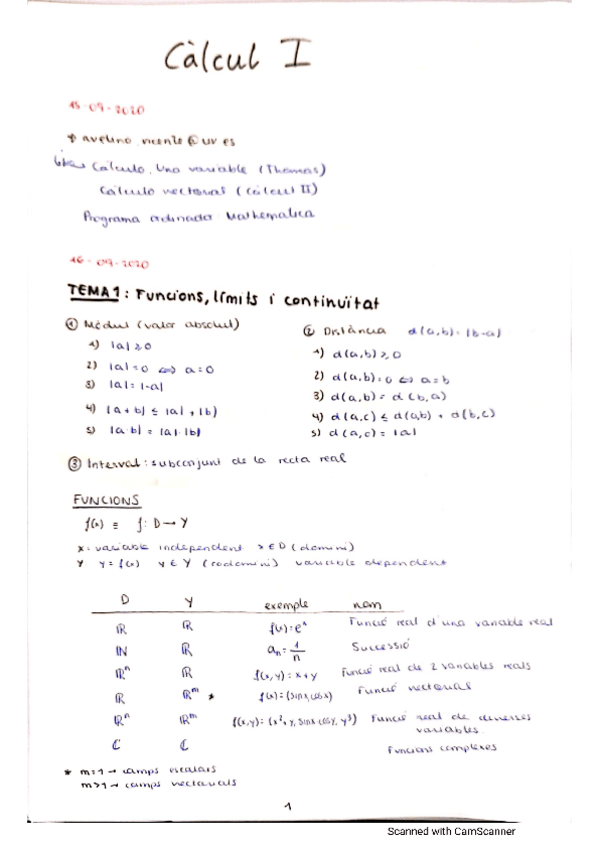 Càlcul I
15-09-2020
* avelino.vicente@uv.es
Cálculo. Una variable (Thomas)
Cálculo vectorial (Càlcul II)
Programa ordinador: Mathematica
16-09-2020
TEMA 1: Funcions, límits i continuïtat
① Mòdul (valor absolut)
1) |a| ≥ 0
2) |a| = 0 ⇔ a = 0
3) |a| = |-a|
4) |a + b| ≤ |a| + |b|
5) |a·b| = |a|·|b|
② Distància d(a,b) = |b-a|
1) d(a,b) ≥ 0
2) d(a,b) = 0 ⇔ a = b
3) d(a,b) = d(b,a)
4) d(a,c) ≤ d(a,b) + d(b,c)
5) d(a,c) = |a|
③ Interval: subconjunt de la recta real
FUNCIONS
f(x) ≡ f: D → Y
x = variable independent x ∈ D (domini)
Y y = f(x) y ∈ Y (codomini) variable dependent
D Y exemple nom
ℝ ℝ f(x) = eˣ Funció real d'una variable real
ℕ ℝ aₙ = 1/n Successió
ℝⁿ ℝ f(x,y) = x+y Funció real de 2 variables reals
ℝ ℝᵐ * f(x) = (sinx, cosx) Funció vectorial
ℝⁿ ℝᵐ f(x,y) = (x²+y, sinx·cosy, y³) Funció real de diverses
variables
ℂ ℂ Funcions complexes
* m=1 → camps escalars
m>1 → camps vectorials
1
Scanned with CamScanner